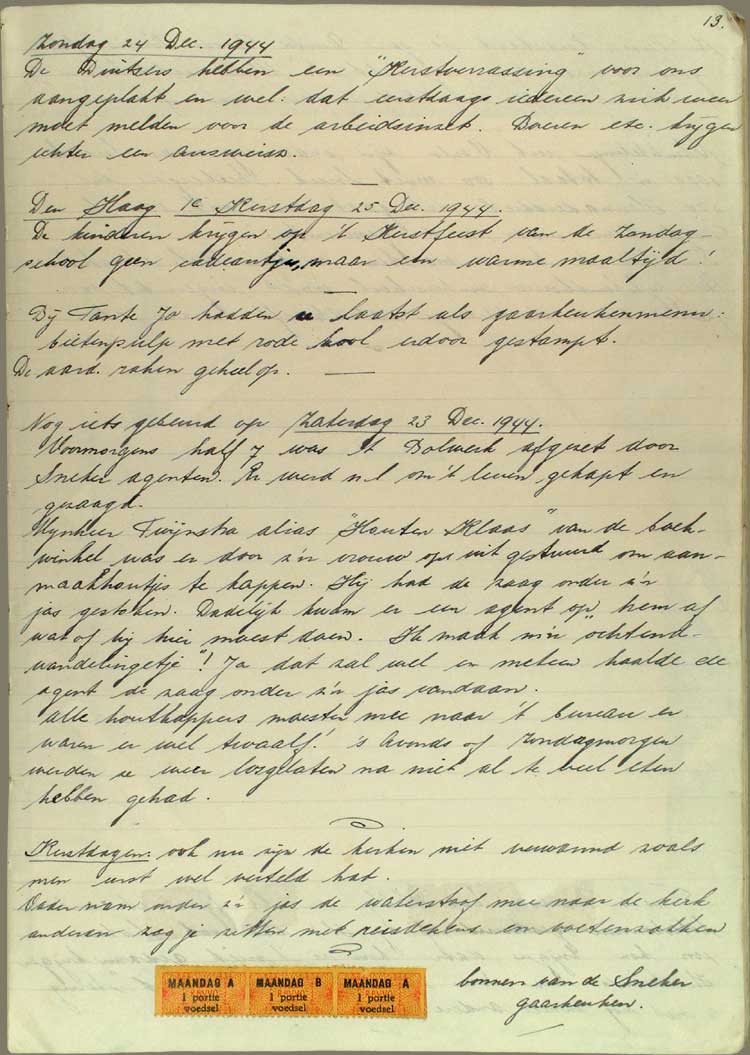 13.
Zondag 24 Dec. 1944
De Duitsers hebben een "Kerstverrassing" voor ons
aangeplakt en wel: dat eerstdaags iedereen zich weer
moet melden voor de arbeidsinzet. Boeren etc. krijgen
echter een ausweisz.
Den Haag 1e Kerstdag 25 Dec. 1944.
De kinderen krijgen op 't Kerstfeest van de Zondag-
school geen cadeautjes, maar een warme maaltijd!
Bij Tante Jo hadden ze laatst als gaarkeukenmenu:
bietenpulp met rode kool erdoor gestampt.
De aard. raken geheel op.
Nog iets gebeurd op Zaterdag 23 Dec. 1944.
Voormorgens half 7 was 't Bolwerk afgezet door
Sneker agenten. Er werd n.l. om 't leven gekapt en
gezaagd.
Mynheer Twijnstra alias "Houten Klaas" van de boek-
winkel was er door z'n vrouw op uit gestuurd om aan-
maakhoutjes te kappen. Hij had de zaag onder z'n
jas gestoken. Dadelijk kwam er een agent op hem af
wat of hij hier moest doen. "Ik maak m'n ochtend-
wandelingetje"! Ja dat zal wel en meteen haalde de
agent de zaag onder z'n jas vandaan.
Alle houthappers moesten mee naar 't bureau er
waren er wel twaalf! 's Avonds of Zondagmorgen
werden ze weer losgelaten na niet al te veel eten
hebben gehad.
Kerstdagen: ook nu zijn de kerken niet verwarmd zoals
men eerst wel verteld had.
Vader nam onder z'n jas de waterstoof mee naar de kerk
anderen zag je zitten met reisdekens en voetenzakken
MAANDAG A MAANDAG B MAANDAG A
1 portie 1 portie 1 portie
voedsel voedsel voedsel
bonnen van de Sneker
gaarkeuken.